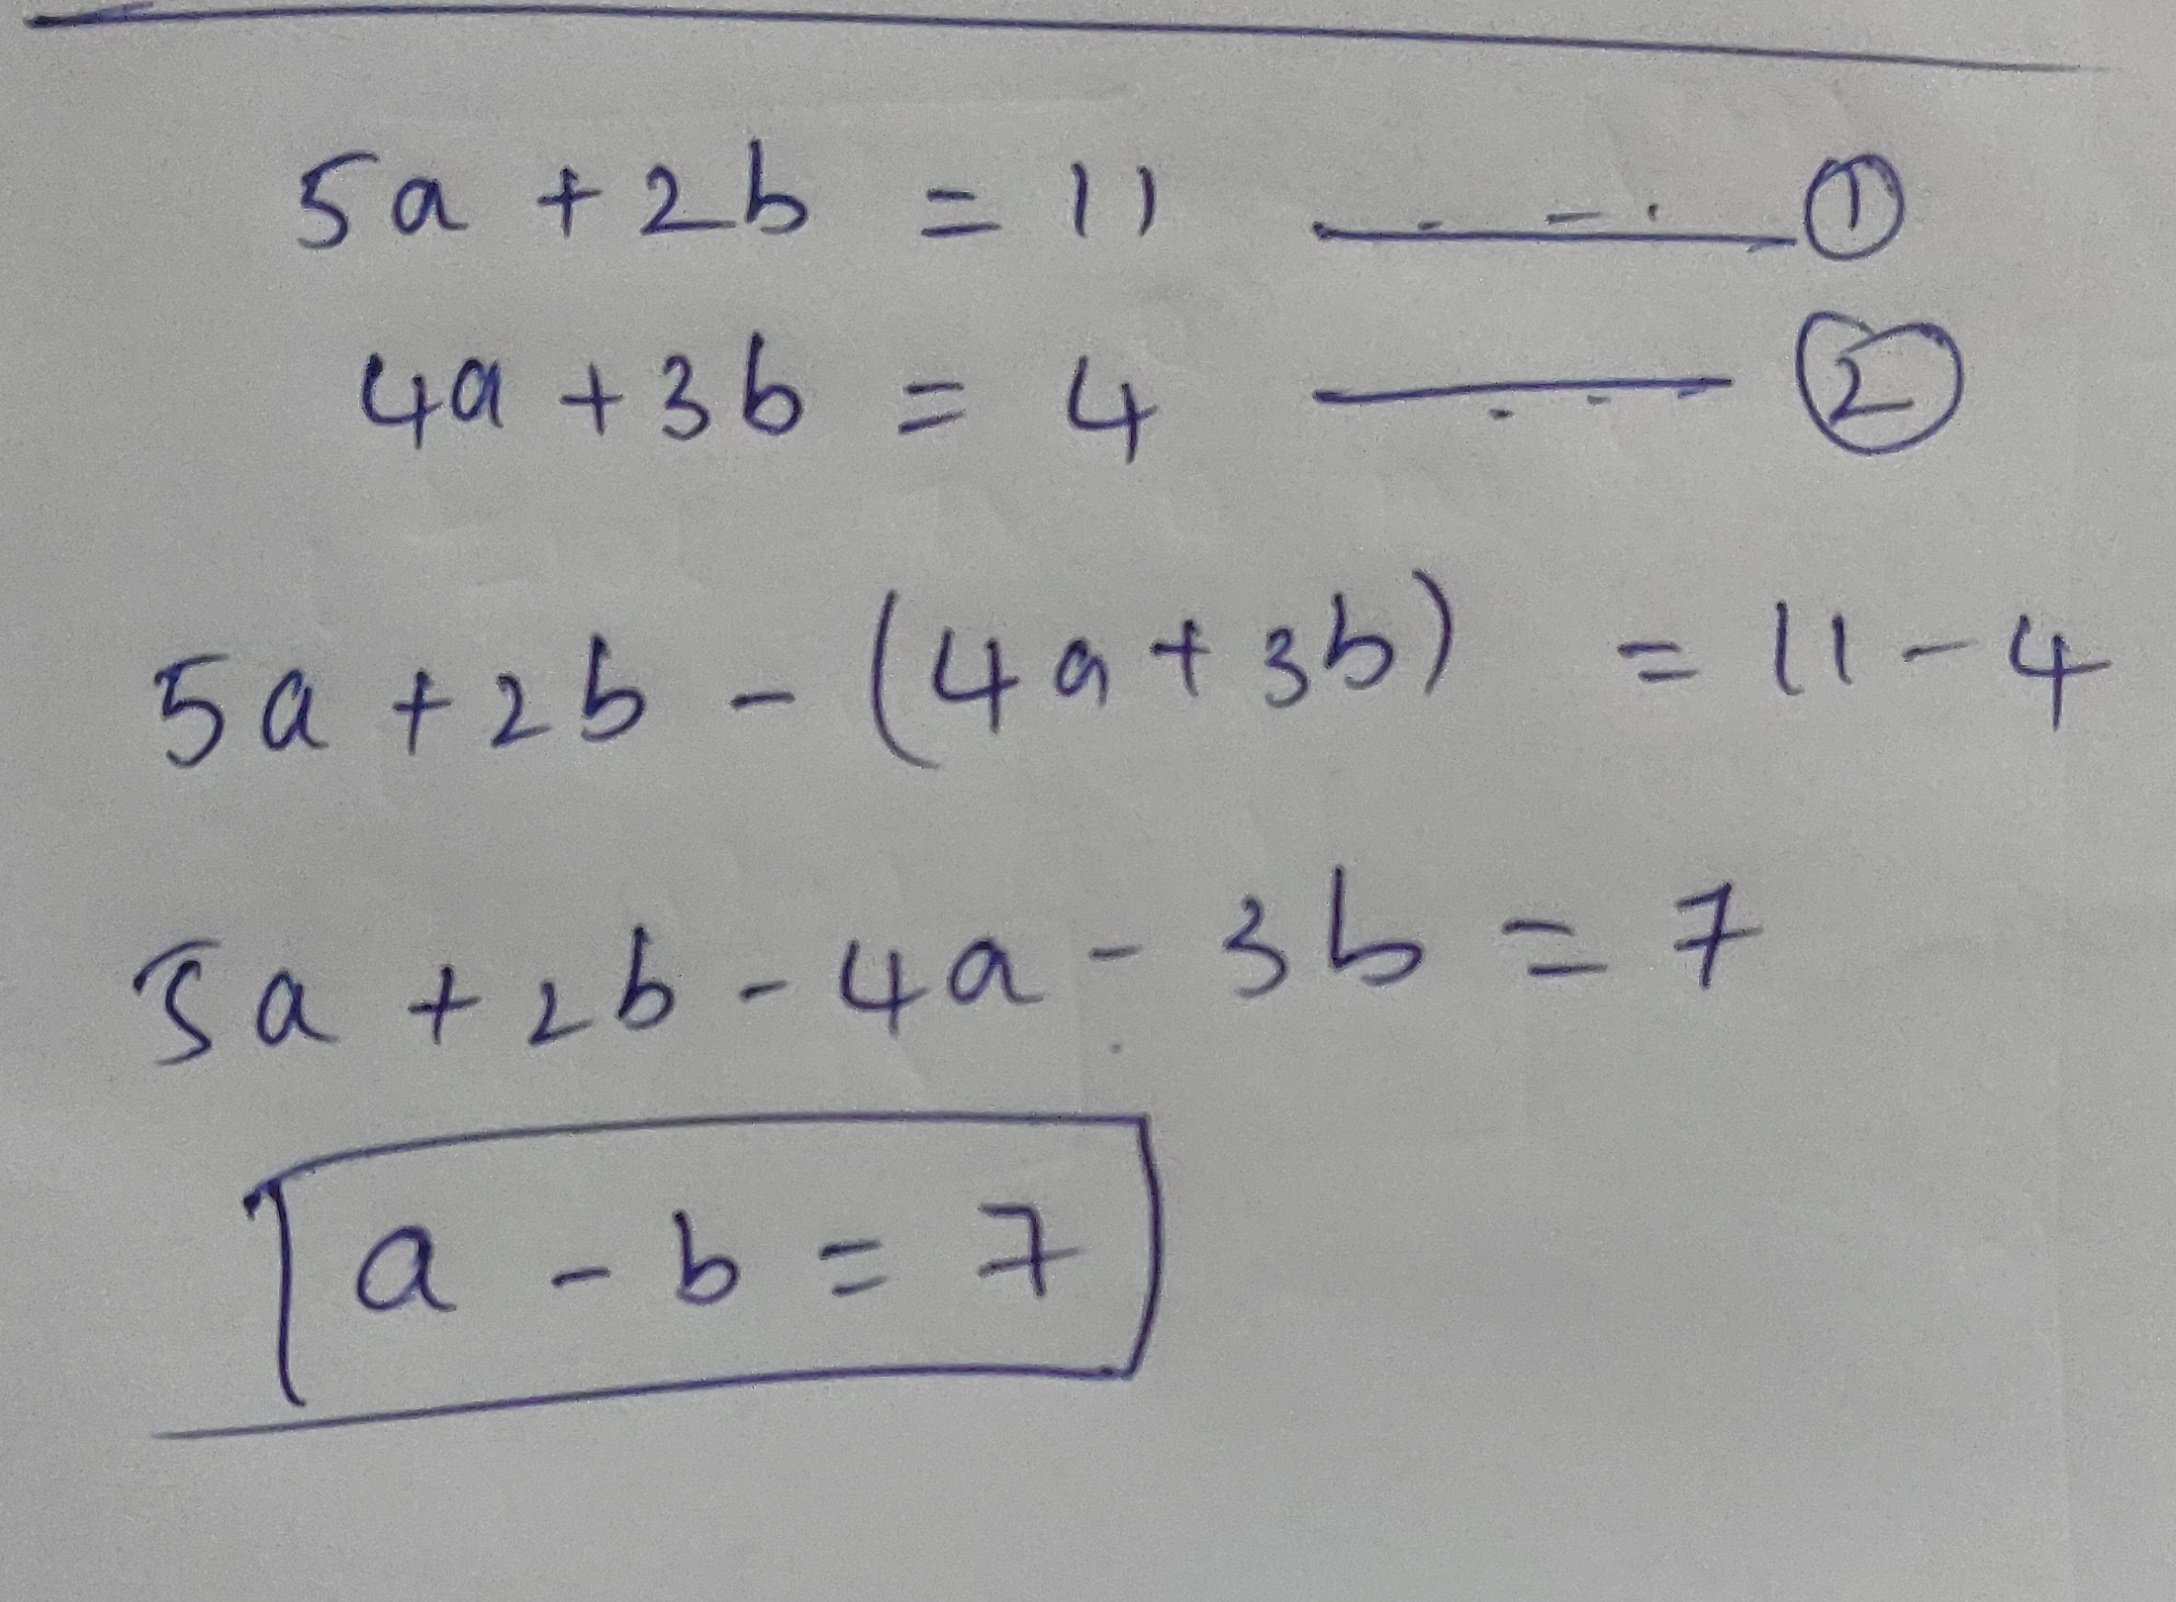 5a + 2b = 11 ——— ①
4a + 3b = 4 ——— ②
5a + 2b - (4a + 3b) = 11 - 4
5a + 2b - 4a - 3b = 7
a - b = 7